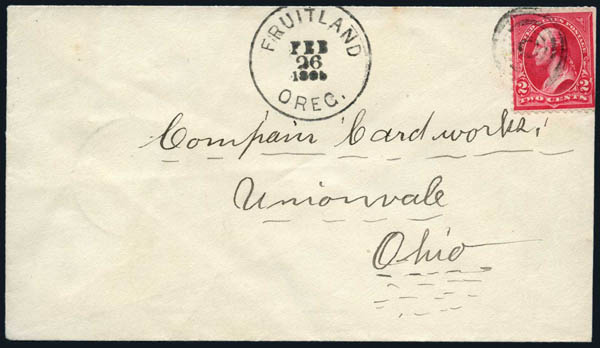 FRUITLAND
FEB
26
OREG.
UNITED STATES POSTAGE
2 2
TWO CENTS
Card works,
Unionvale
Ohio